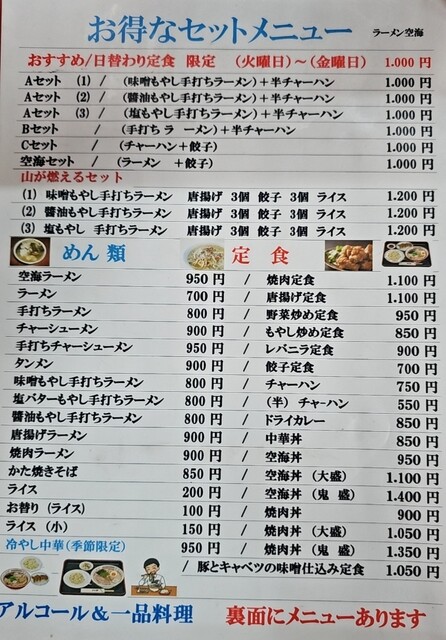 お得なセットメニュー ラーメン空海
おすすめ/日替わり定食 限定 (火曜日)~(金曜日) 1.000 円
Aセット (1) / (味噌もやし手打ちラーメン)+半チャーハン 1.000 円
Aセット (2) / (醬油もやし手打ちラーメン)+半チャーハン 1.000 円
Aセット (3) / (塩もやし手打ちラーメン)+半チャーハン 1.000 円
Bセット / (手打ち ラ ーメン)+半チャーハン 1.000 円
Cセット / (チャーハン+餃子) 1.000 円
空海セット / (ラーメン +餃子) 1.000 円
山が燃えるセット
(1) 味噌もやし手打ちラーメン 唐揚げ 3個 餃子 3個 ライス 1.200 円
(2) 醬油もやし手打ちラーメン 唐揚げ 3個 餃子 3個 ライス 1.200 円
(3) 塩もやし 手打ちラーメン 唐揚げ 3個 餃子 3個 ライス 1.200 円
めん 類 定 食
空海ラーメン 950 円 / 焼肉定食 1.100 円
ラーメン 700 円 / 唐揚げ定食 1.100 円
手打ちラーメン 800 円 / 野菜炒め定食 950 円
チャーシューメン 900 円 / もやし炒め定食 850 円
手打ちチャーシューメン 950 円 / レバニラ定食 900 円
タンメン 900 円 / 餃子定食 700 円
味噌もやし手打ちラーメン 800 円 / チャーハン 750 円
塩バターもやし手打ちラーメン 800 円 / (半) チャ-ハン 550 円
醬油もやし手打ちラーメン 800 円 / ドライカレー 850 円
唐揚げラーメン 900 円 / 中華丼 850 円
焼肉ラーメン 900 円 / 空海丼 950 円
かた焼きそば 850 円 / 空海丼 (大盛) 1.100 円
ライス 200 円 / 空海丼 (鬼 盛) 1.400 円
お替り (ライス) 100 円 / 焼肉丼 900 円
ライス (小) 150 円 / 焼肉丼 (大盛) 1.050 円
冷やし中華(季節限定) 950 円 / 焼肉丼 (鬼 盛) 1.350 円
/ 豚とキャベツの味噌仕込み定食 1.050 円
アルコール&一品料理 裏面にメニューあります